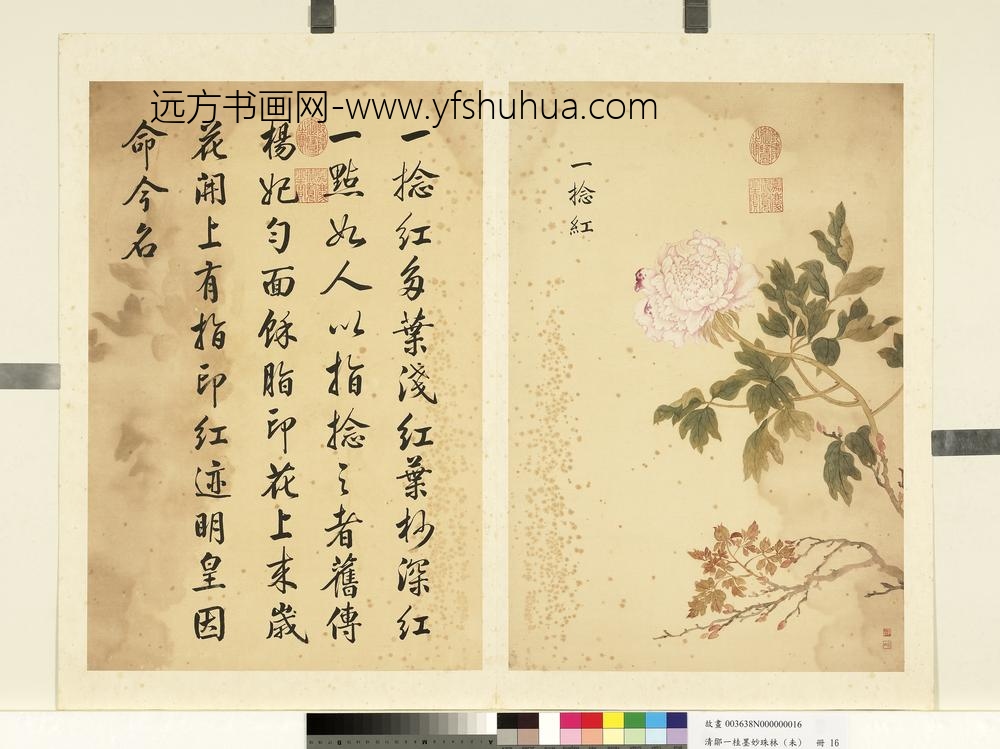 远方书画网-www.yfshuhua.com
一捻紅
一捻紅多葉淺紅葉杪深紅
一點如人以指捻之者舊傳
楊妃勻面餘脂印花上來歲
花開上有指印紅迹明皇因
命今名
故畫 003638N000000016
清鄒一桂墨妙珠林（未） 冊 16